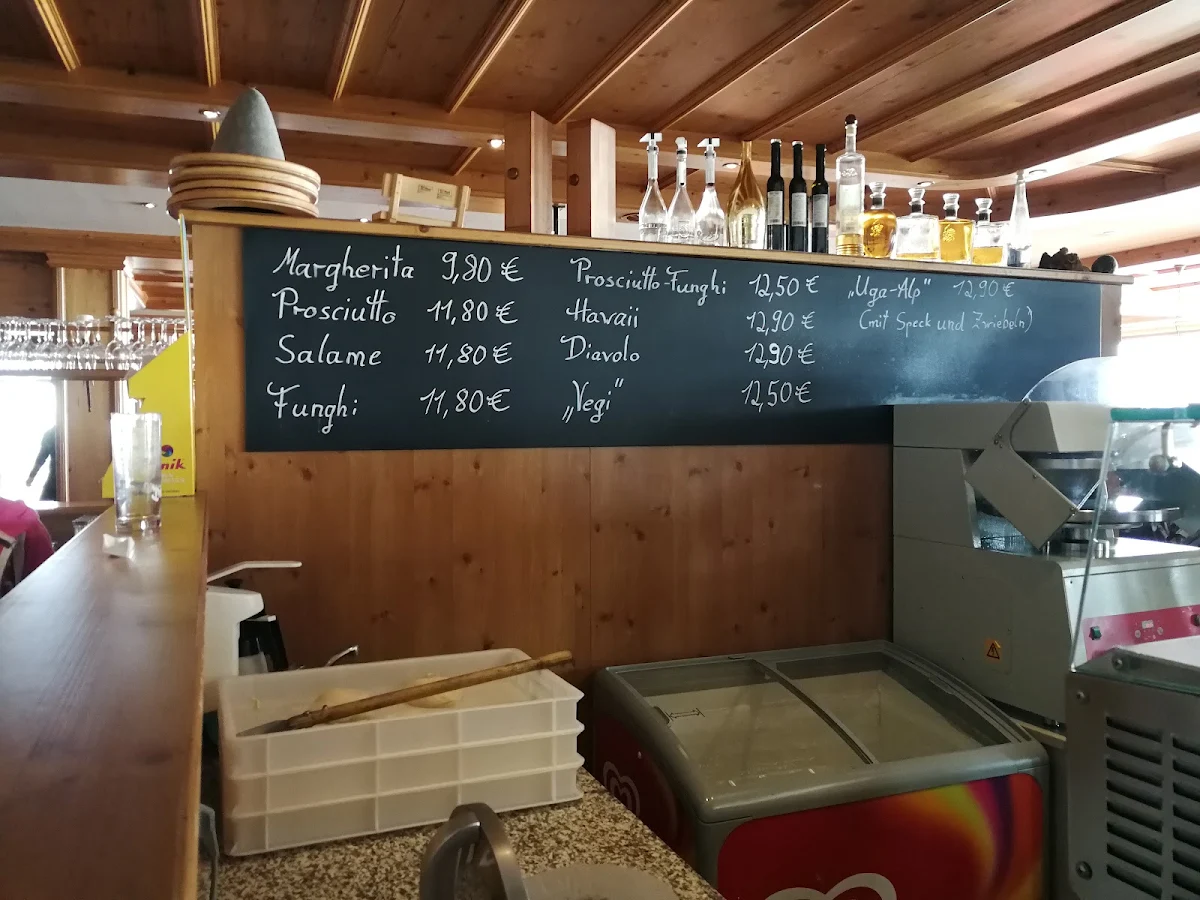 Margherita 9,80 €
Prosciutto 11,80 €
Salame 11,80 €
Funghi 11,80 €
Prosciutto-Funghi 12,50 €
Havaii 12,90 €
Diavolo 12,90 €
„Vegi" 12,50 €
„Uga-Alp" 12,90 €
(mit Speck und Zwiebeln)